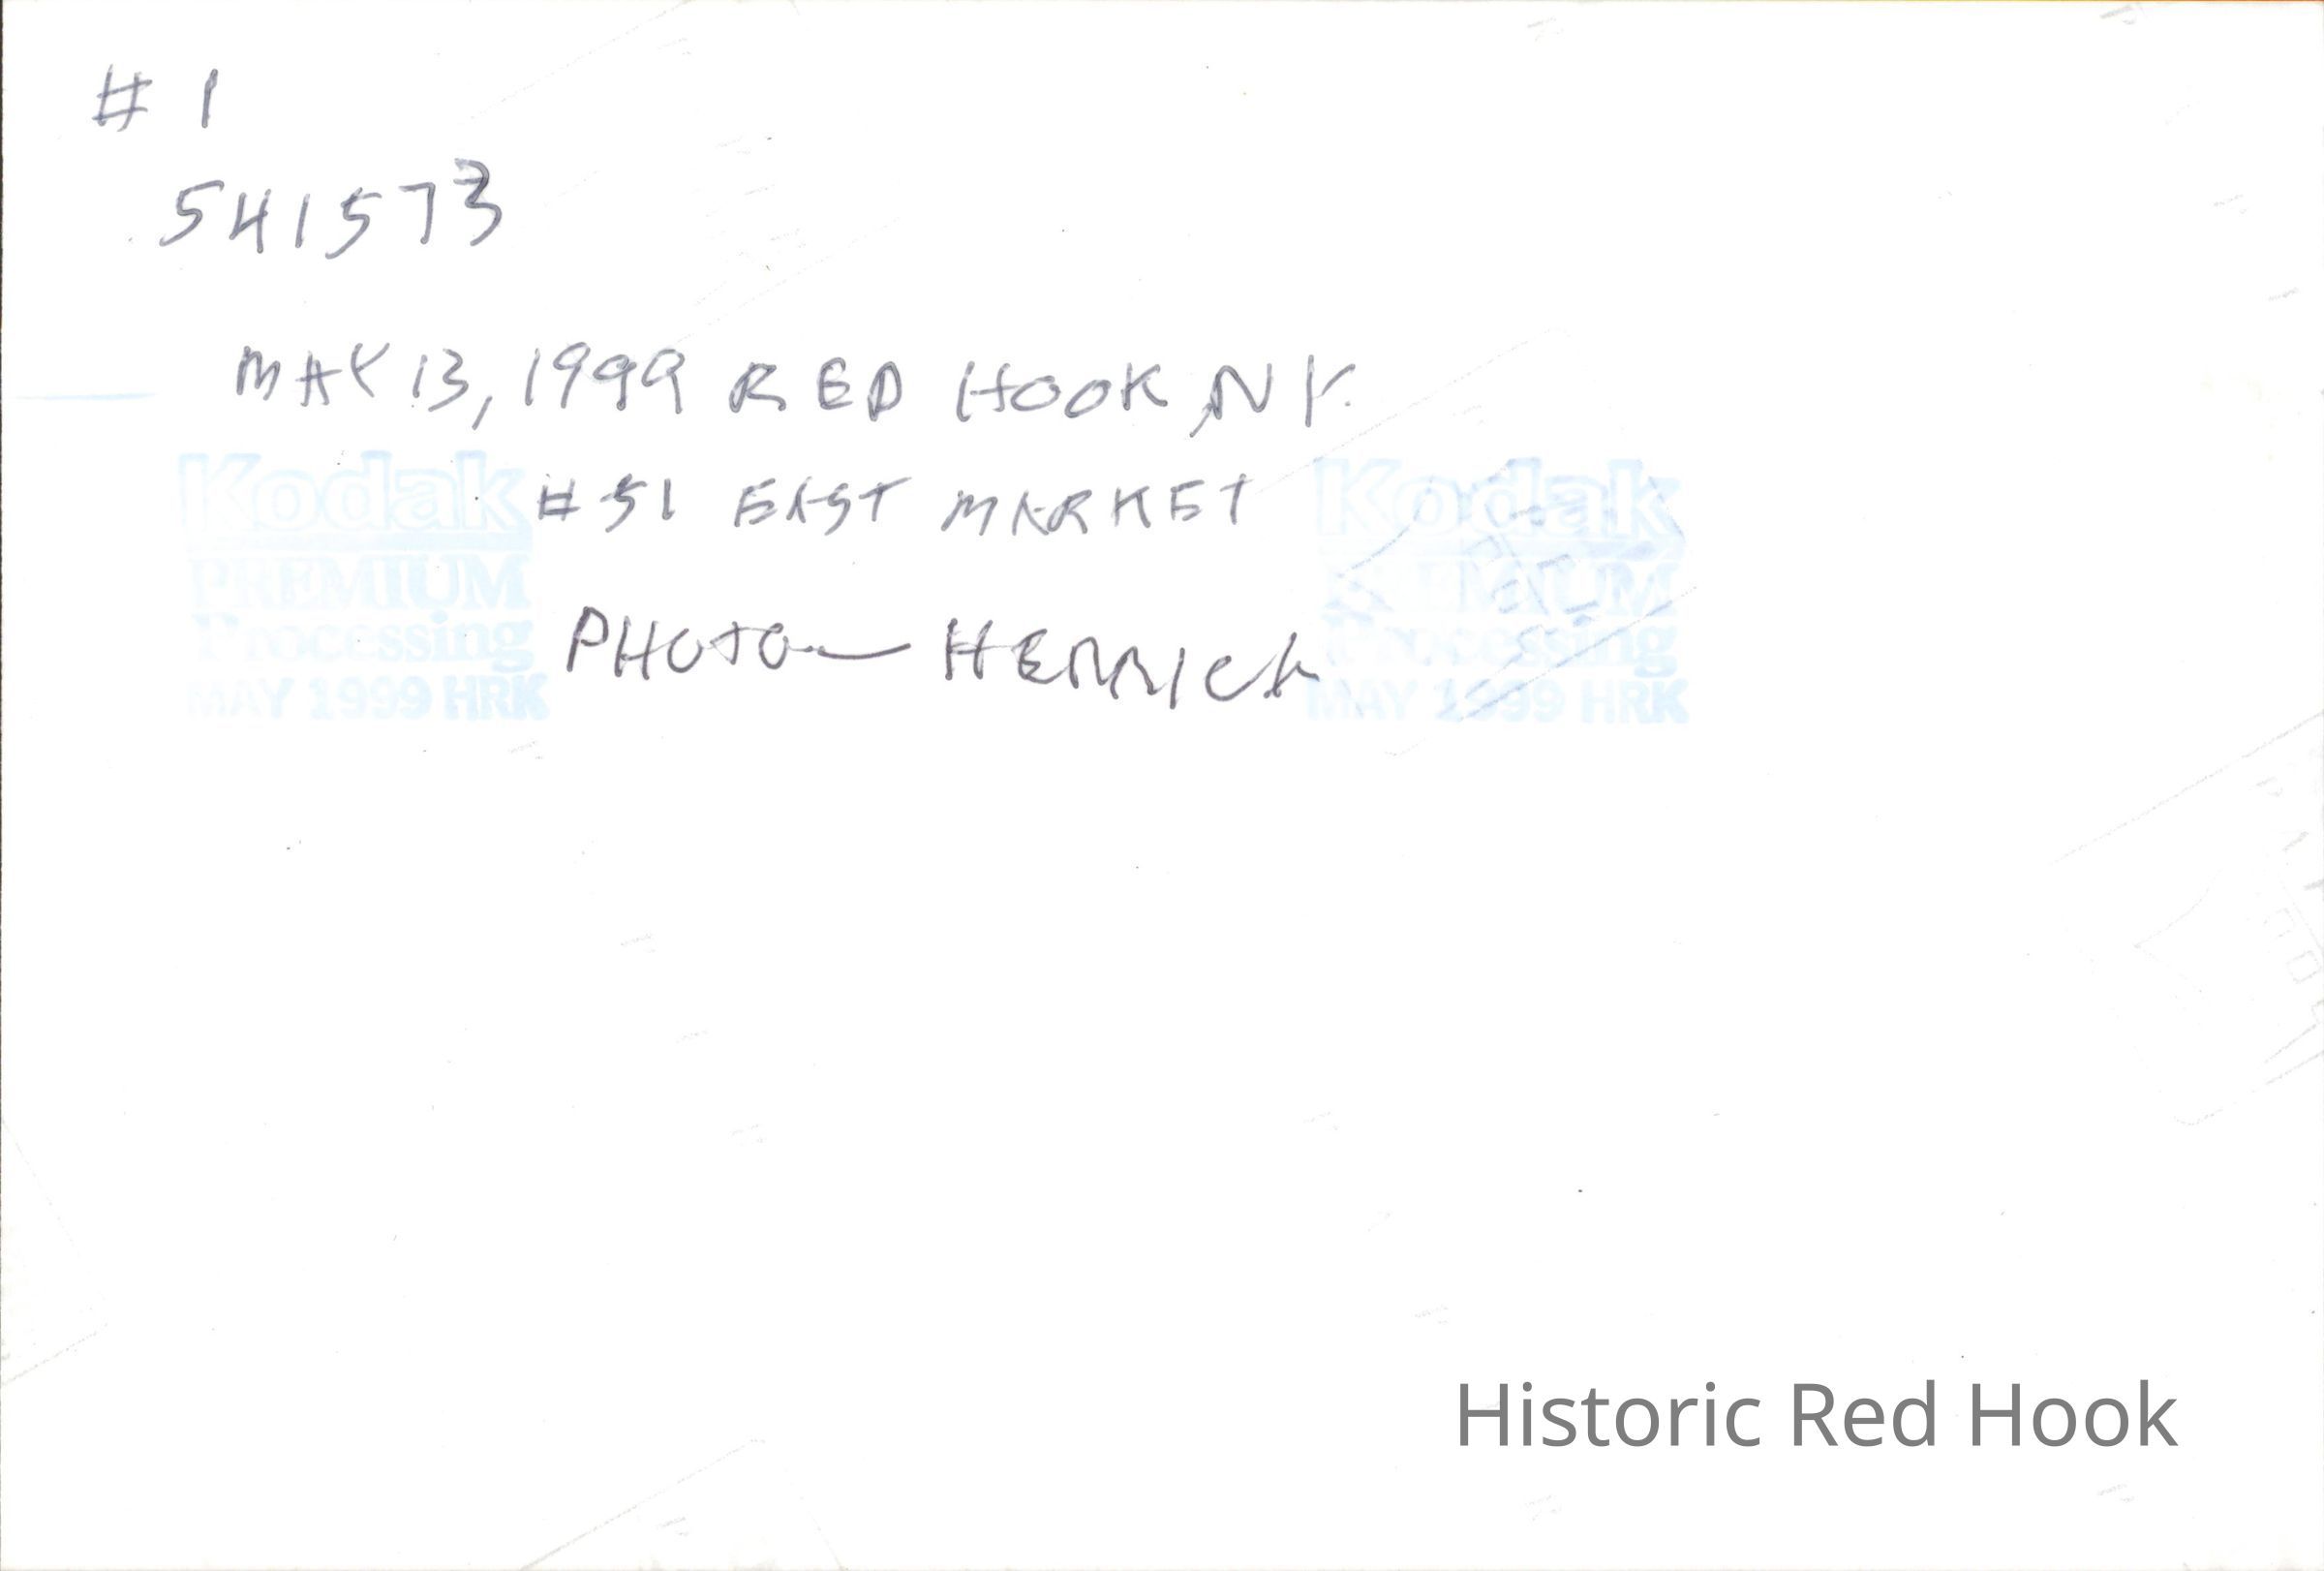 # 1
541573
MAY 13, 1999 RED HOOK, NY.
# 51 EAST MARKET
PHOTO — HERRICK
Kodak
PREMIUM
Processing
MAY 1999 HRK
Kodak
PREMIUM
Processing
MAY 1999 HRK
Historic Red Hook